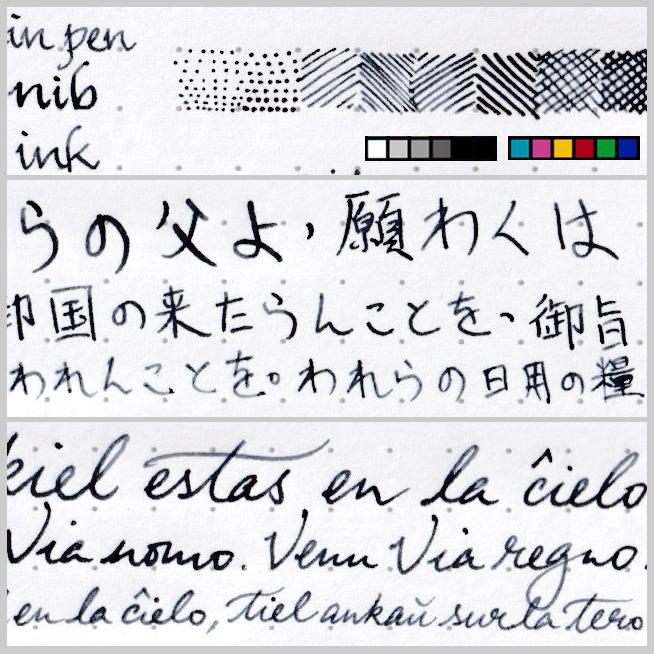 in pen
nib
ink
らの父よ，願わくは
御国の来たらんことを、御旨
われんことを。われらの日用の糧
kiel estas en la ĉielo
Via nomo. Venu Via regno.
en la ĉielo, tiel ankaŭ sur la tero